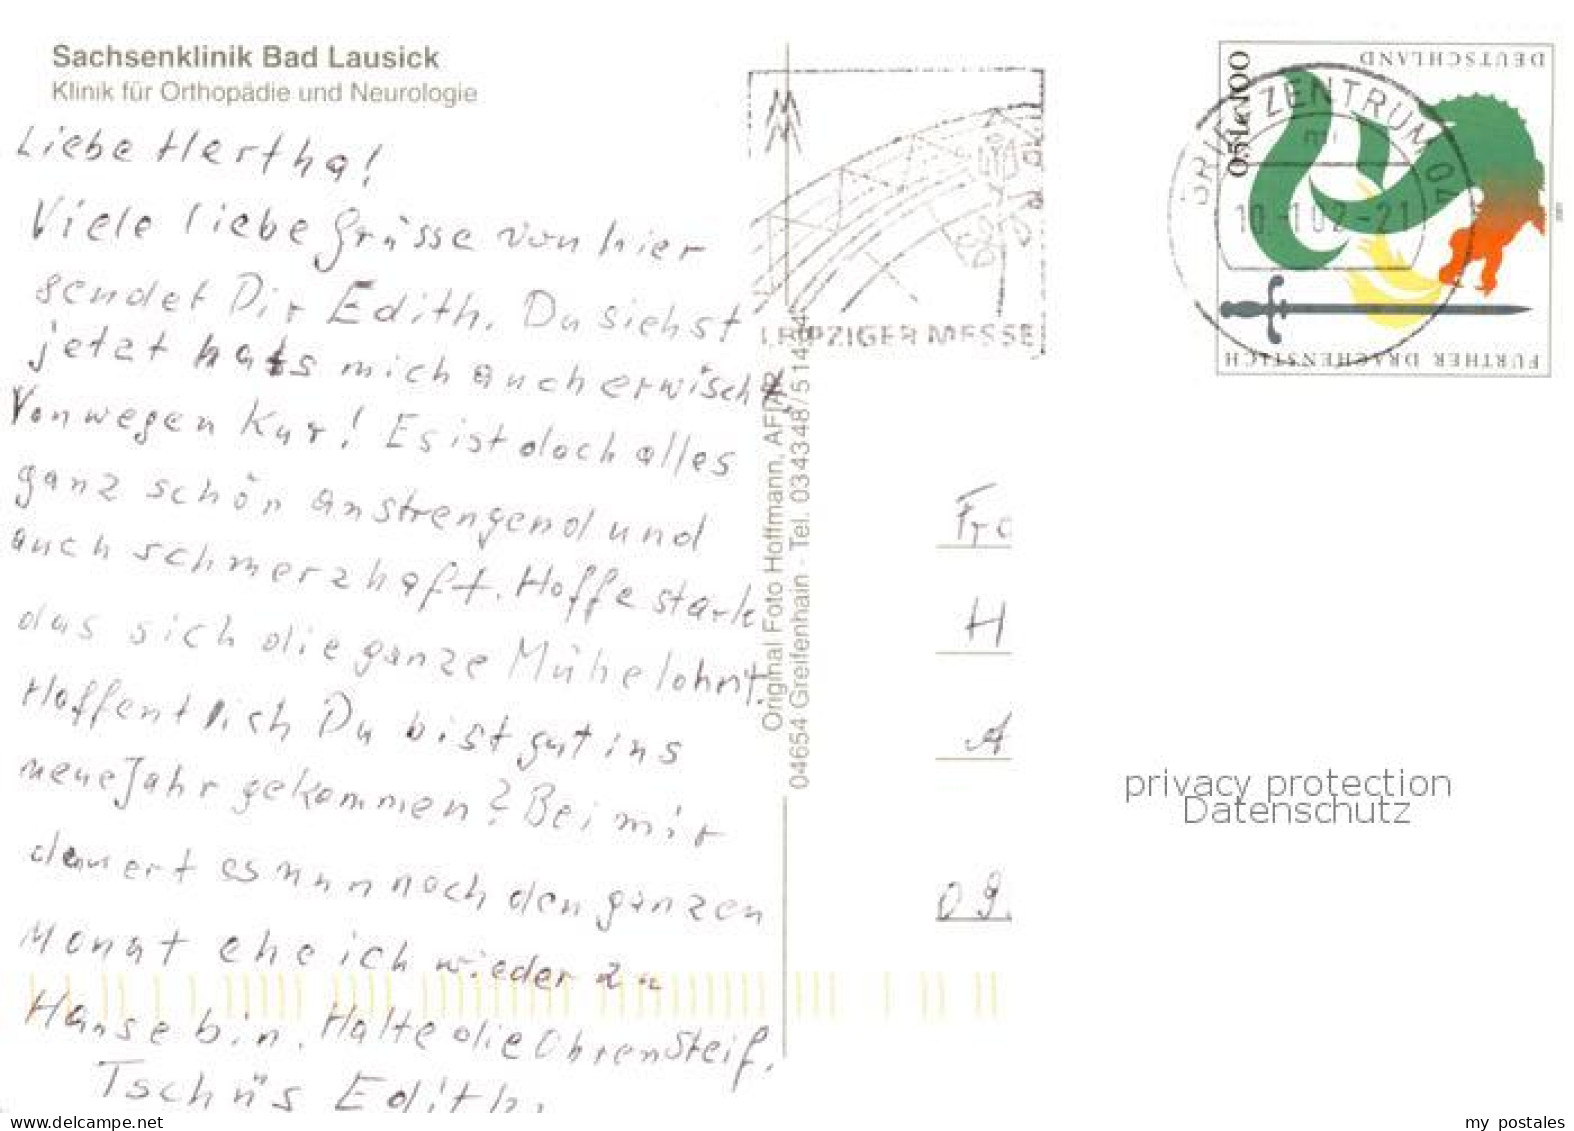 Sachsenklinik Bad Lausick
Klinik für Orthopädie und Neurologie
Liebe Hertha!
Viele liebe Grüsse von hier
sendet Dir Edith. Du siehst
jetzt hats mich auch erwischt,
Von wegen Kur! Es ist doch alles
ganz schön anstrengend und
auch schmerzhaft. Hoffe stark
das sich die ganze Mühe lohnt.
Hoffentlich Du bist gut ins
neue Jahr gekommen? Bei mir
dauert es nun noch den ganzen
Monat ehe ich wieder zu
Hause bin. Halte die Ohren Steif.
Tschüs Edith.
Original Foto Hoffmann, AFIAP
04654 Greifenhain - Tel. 034348/514
LEIPZIGER MESSE
DEUTSCHLAND
0,51 € 100
FURTHER DRACHENSTICH
BRIEFZENTRUM 04
10-1 02-21
Fr
H
A
09.
privacy protection
Datenschutz
www.delcampe.net
my postales